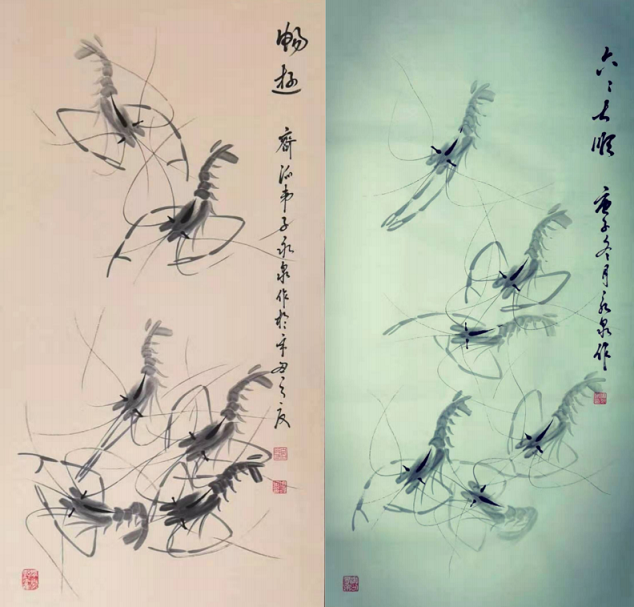 畅游
齐派弟子永泉作於辛丑之夏
六六大顺
庚子冬月永泉作